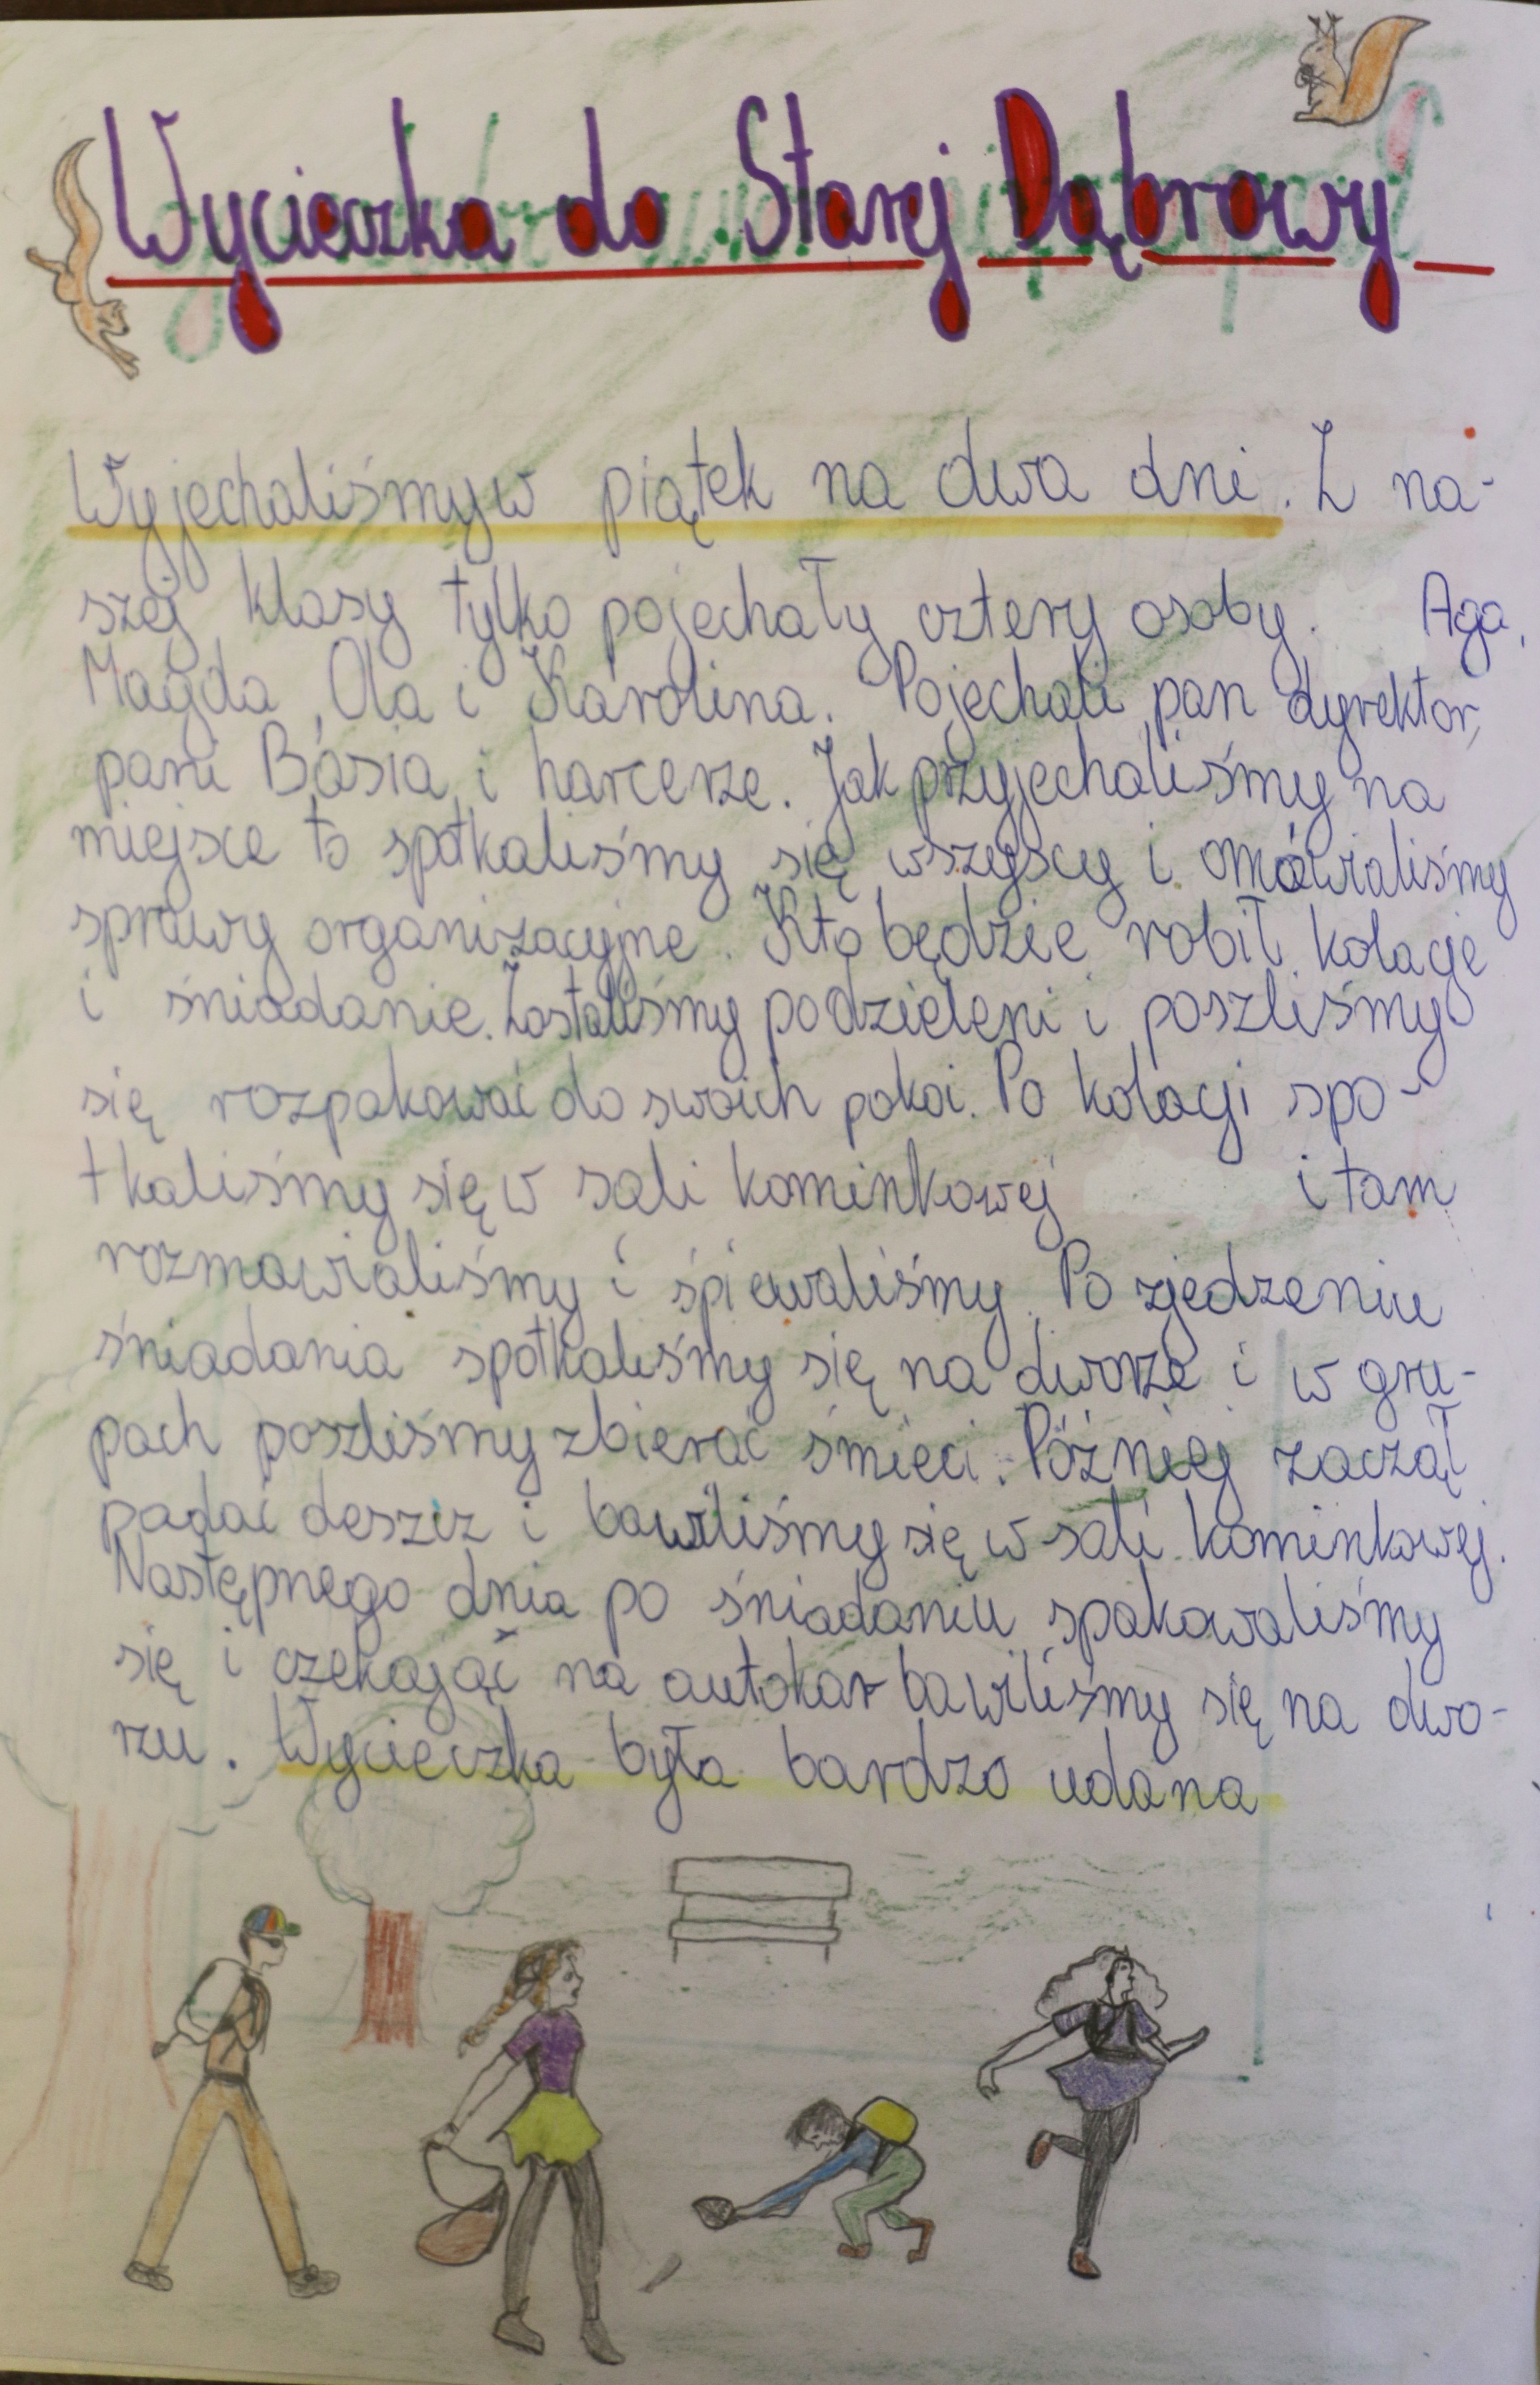 Wycieczka do Starej Dąbrowy
Wyjechaliśmy w piątek na dwa dni. Z na-
szej klasy tylko pojechały cztery osoby. Aga,
Magda, Ola i Karolina. Pojechali pan dyrektor,
pani Basia i harcerze. Jak przyjechaliśmy na
miejsce to spotkaliśmy się wszyscy i omówialiśmy
sprawy organizacyjne. Kto będzie robił kolacje
i śniadanie. Zostaliśmy podzieleni i poszliśmy
się rozpakować do swoich pokoi. Po kolacji spo-
tkaliśmy się w sali kominkowej i tam
rozmawialiśmy i śpiewaliśmy. Po zjedzeniu
śniadania spotkaliśmy się na dworze i w gru-
pach poszliśmy zbierać śmieci. Później zaczął
padać deszcz i bawiliśmy się w sali kominkowej.
Następnego dnia po śniadaniu spakowaliśmy
się i czekając na autokar bawiliśmy się na dwo-
rzu. Wycieczka była bardzo udana